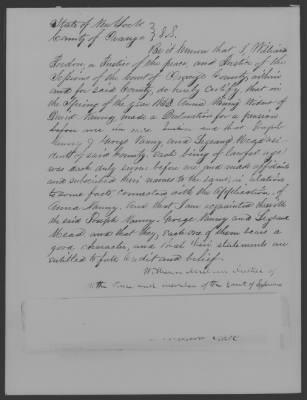 State of New York
County of Orange } S.S.
Be it known that I, William
Gordon, a Justice of the peace, and Justice of the
Sessions of the Court of Orange County, within
and for said County, do hereby Certify, that in
the Spring of the year 1853 Anna Vanny Widow of
David Vanny, made a Declaration for a pension
before me and that Joseph
Vanny, George Vanny, and
dents of said County, each being of lawful age,
was each duly sworn before me and made affidavits
and subscribed their names to the same, in relation
to some facts connected with the application of
Anna Vanny. And that I am acquainted with
the said Joseph Vanny, George Vanny and
Mead, and that they, each one of them bears a
good character, and that their statements are
entitled to full credit and belief.
William Justice of
the Peace and member of the Court of Sessions